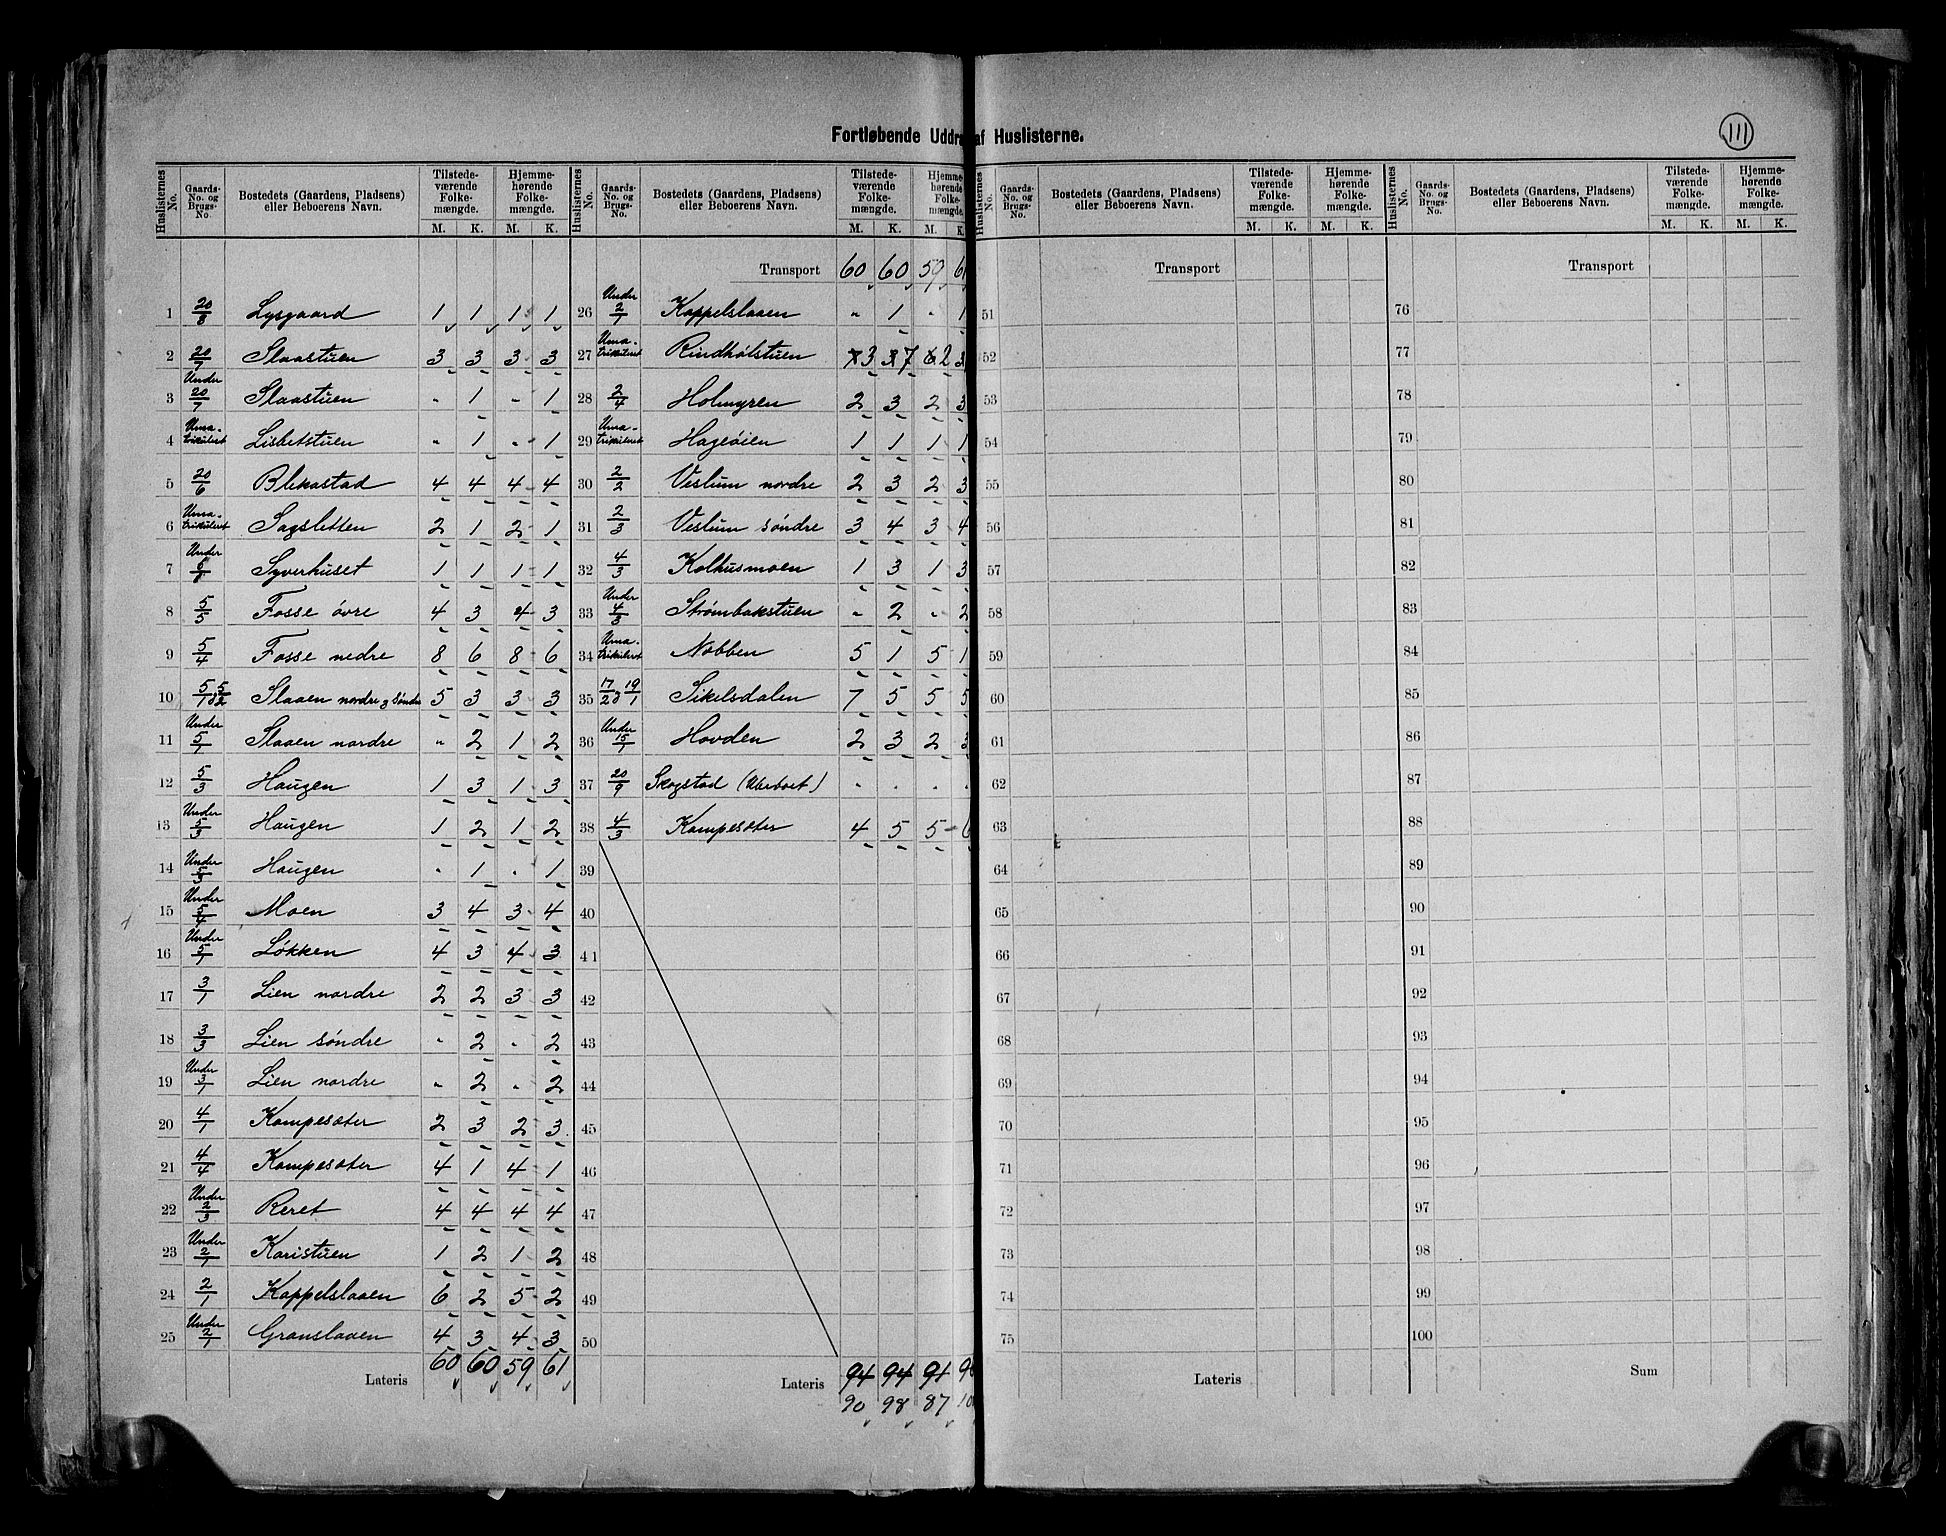 Fortløbende Uddr af Huslisterne.
111
Huslisternes No. | Gaards-No. og Brugs-No. | Bostedets (Gaardens, Pladsens) eller Beboerens Navn. | Tilstede-værende Folke-mængde. M. K. | Hjemme-hørende Folke-mængde. M. K.
1 20/8 Lysgaard 1 1 1 1
2 20/7 Slaastuen 3 3 3 3
3 Under 20/7 Slaastuen " 1 " 1
4 Uma-trikuleret Lisbetstuen " 1 " 1
5 20/6 Blekastad 4 4 4 4
6 Uma-trikuleret Sagsletten 2 1 2 1
7 Under Syverhuset 1 1 1 1
8 5/5 Fosse øvre 4 3 4 3
9 5/4 Fosse nedre 8 6 8 6
10 5/1 & 5/2 Slaaen nordre & søndre 5 3 3 3
11 Under 5/1 Slaaen nordre " 2 1 2
12 5/3 Haugen 1 3 1 3
13 Under 5/3 Haugen 1 2 1 2
14 Under 5/3 Haugen " 1 " 1
15 Under 5/4 Moen 3 4 3 4
16 Under 5/1 Løkken 4 3 4 3
17 3/1 Lien nordre 2 2 3 3
18 3/3 Lien søndre " 2 " 2
19 Under 3/1 Lien nordre " 2 " 2
20 4/1 Kampesæter 2 3 2 3
21 4/4 Kampesæter 4 1 4 1
22 Under 2/3 Reret 4 4 4 4
23 Under 2/1 Karistuen 1 2 1 2
24 2/1 Kappelslaaen 6 2 5 2
25 Under 2/1 Granslaaen 4 3 4 3
Lateris 60 60 59 61
Huslisternes No. | Gaards-No. og Brugs-No. | Bostedets (Gaardens, Pladsens) eller Beboerens Navn. | Tilstede-værende Folke-mængde. M. K. | Hjemme hørende Folke-mængde. M. K.
Transport 60 60 59 61
26 Under 2/1 Kappelslaaen " 1 " 1
27 Uma-trikuleret Rindhølstuen 3 7 2
28 2/4 Holmyren 2 3 2 3
29 Uma-trikuleret Hageøien 1 1 1 1
30 2/2 Veslum nordre 2 3 2 3
31 2/3 Veslum søndre 3 4 3 4
32 4/3 Kolhusmoen 1 3 1 3
33 Under 4/3 Strømbakstuen " 2 " 2
34 Uma-trikuleret Nobben 5 1 5 1
35 17/2 & 19/1 Sikelsdalen 7 5 5 5
36 Under 15/1 Hovden 2 3 2 3
37 20/9 Skogstad (Ubeboet) " " " "
38 4/3 Kampesæter 4 5 5 6
39
40
41
42
43
44
45
46
47
48
49
50
Lateris 94 94 91
90 98 87 10
Huslisternes No. | Gaards-No. og Brugs-No. | Bostedets (Gaardens, Pladsens) eller Beboerens Navn. | Tilstede-værende Folke-mængde. M. K. | Hjemme-hørende Folke-mængde. M. K.
Transport
51
52
53
54
55
56
57
58
59
60
61
62
63
64
65
66
67
68
69
70
71
72
73
74
75
Lateris
Huslisternes No. | Gaards-No. og Brugs-No. | Bostedets (Gaardens, Pladsens) eller Beboerens Navn. | Tilstede-værende Folke-mængde. M. K. | Hjemme-hørende Folke-mængde. M. K.
Transport
76
77
78
79
80
81
82
83
84
85
86
87
88
89
90
91
92
93
94
95
96
97
98
99
100
Sum